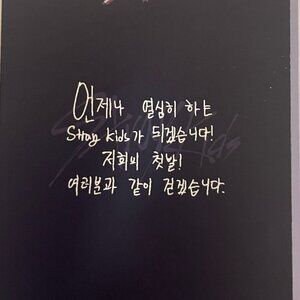 언제나 열심히 하는
Stray Kids가 되겠습니다!
저희의 첫날!
여러분과 같이 걷겠습니다.